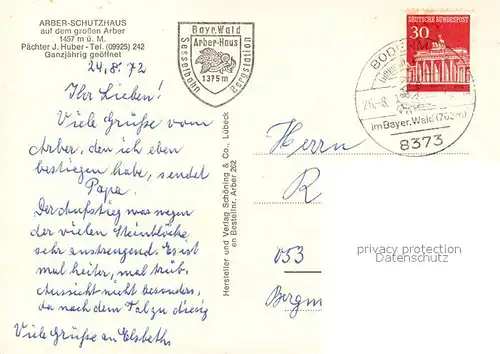 ARBER-SCHUTZHAUS
auf dem großen Arber
1457 m ü. M.
Pächter J. Huber - Tel. (09925) 242
Ganzjährig geöffnet
24.8.72
Ihr Lieben!
Viele Grüße vom
Arber, den ich eben
bestiegen habe, sendet
Papa.
Der Aufstieg war wegen
der vielen Steinblöcke
sehr anstrengend. Es ist
mal heiter, mal trüb.
Aussicht nicht besonders,
da nach dem Tal zu diesig
Viele Grüße an Elsbeth
Bayr. Wald
Arber-Haus
1375 m
Sesselbahn
Bergstation
Hersteller und Verlag Schöning & Co., Lübeck
en Bestellnr. Arber 262
DEUTSCHE BUNDESPOST
30
im Bayer. Wald
8373
Herrn
R
053
privacy protection
Datenschutz